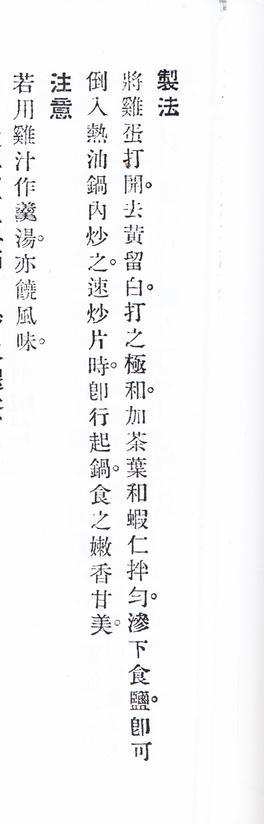 製法
將雞蛋打開。去黃留白。打之極和。加茶葉和蝦仁拌勻。滲下食鹽。卽可
倒入熱油鍋內炒之。速炒片時。卽行起鍋。食之嫩香甘美。
注意
若用雞汁作羹湯。亦饒風味。